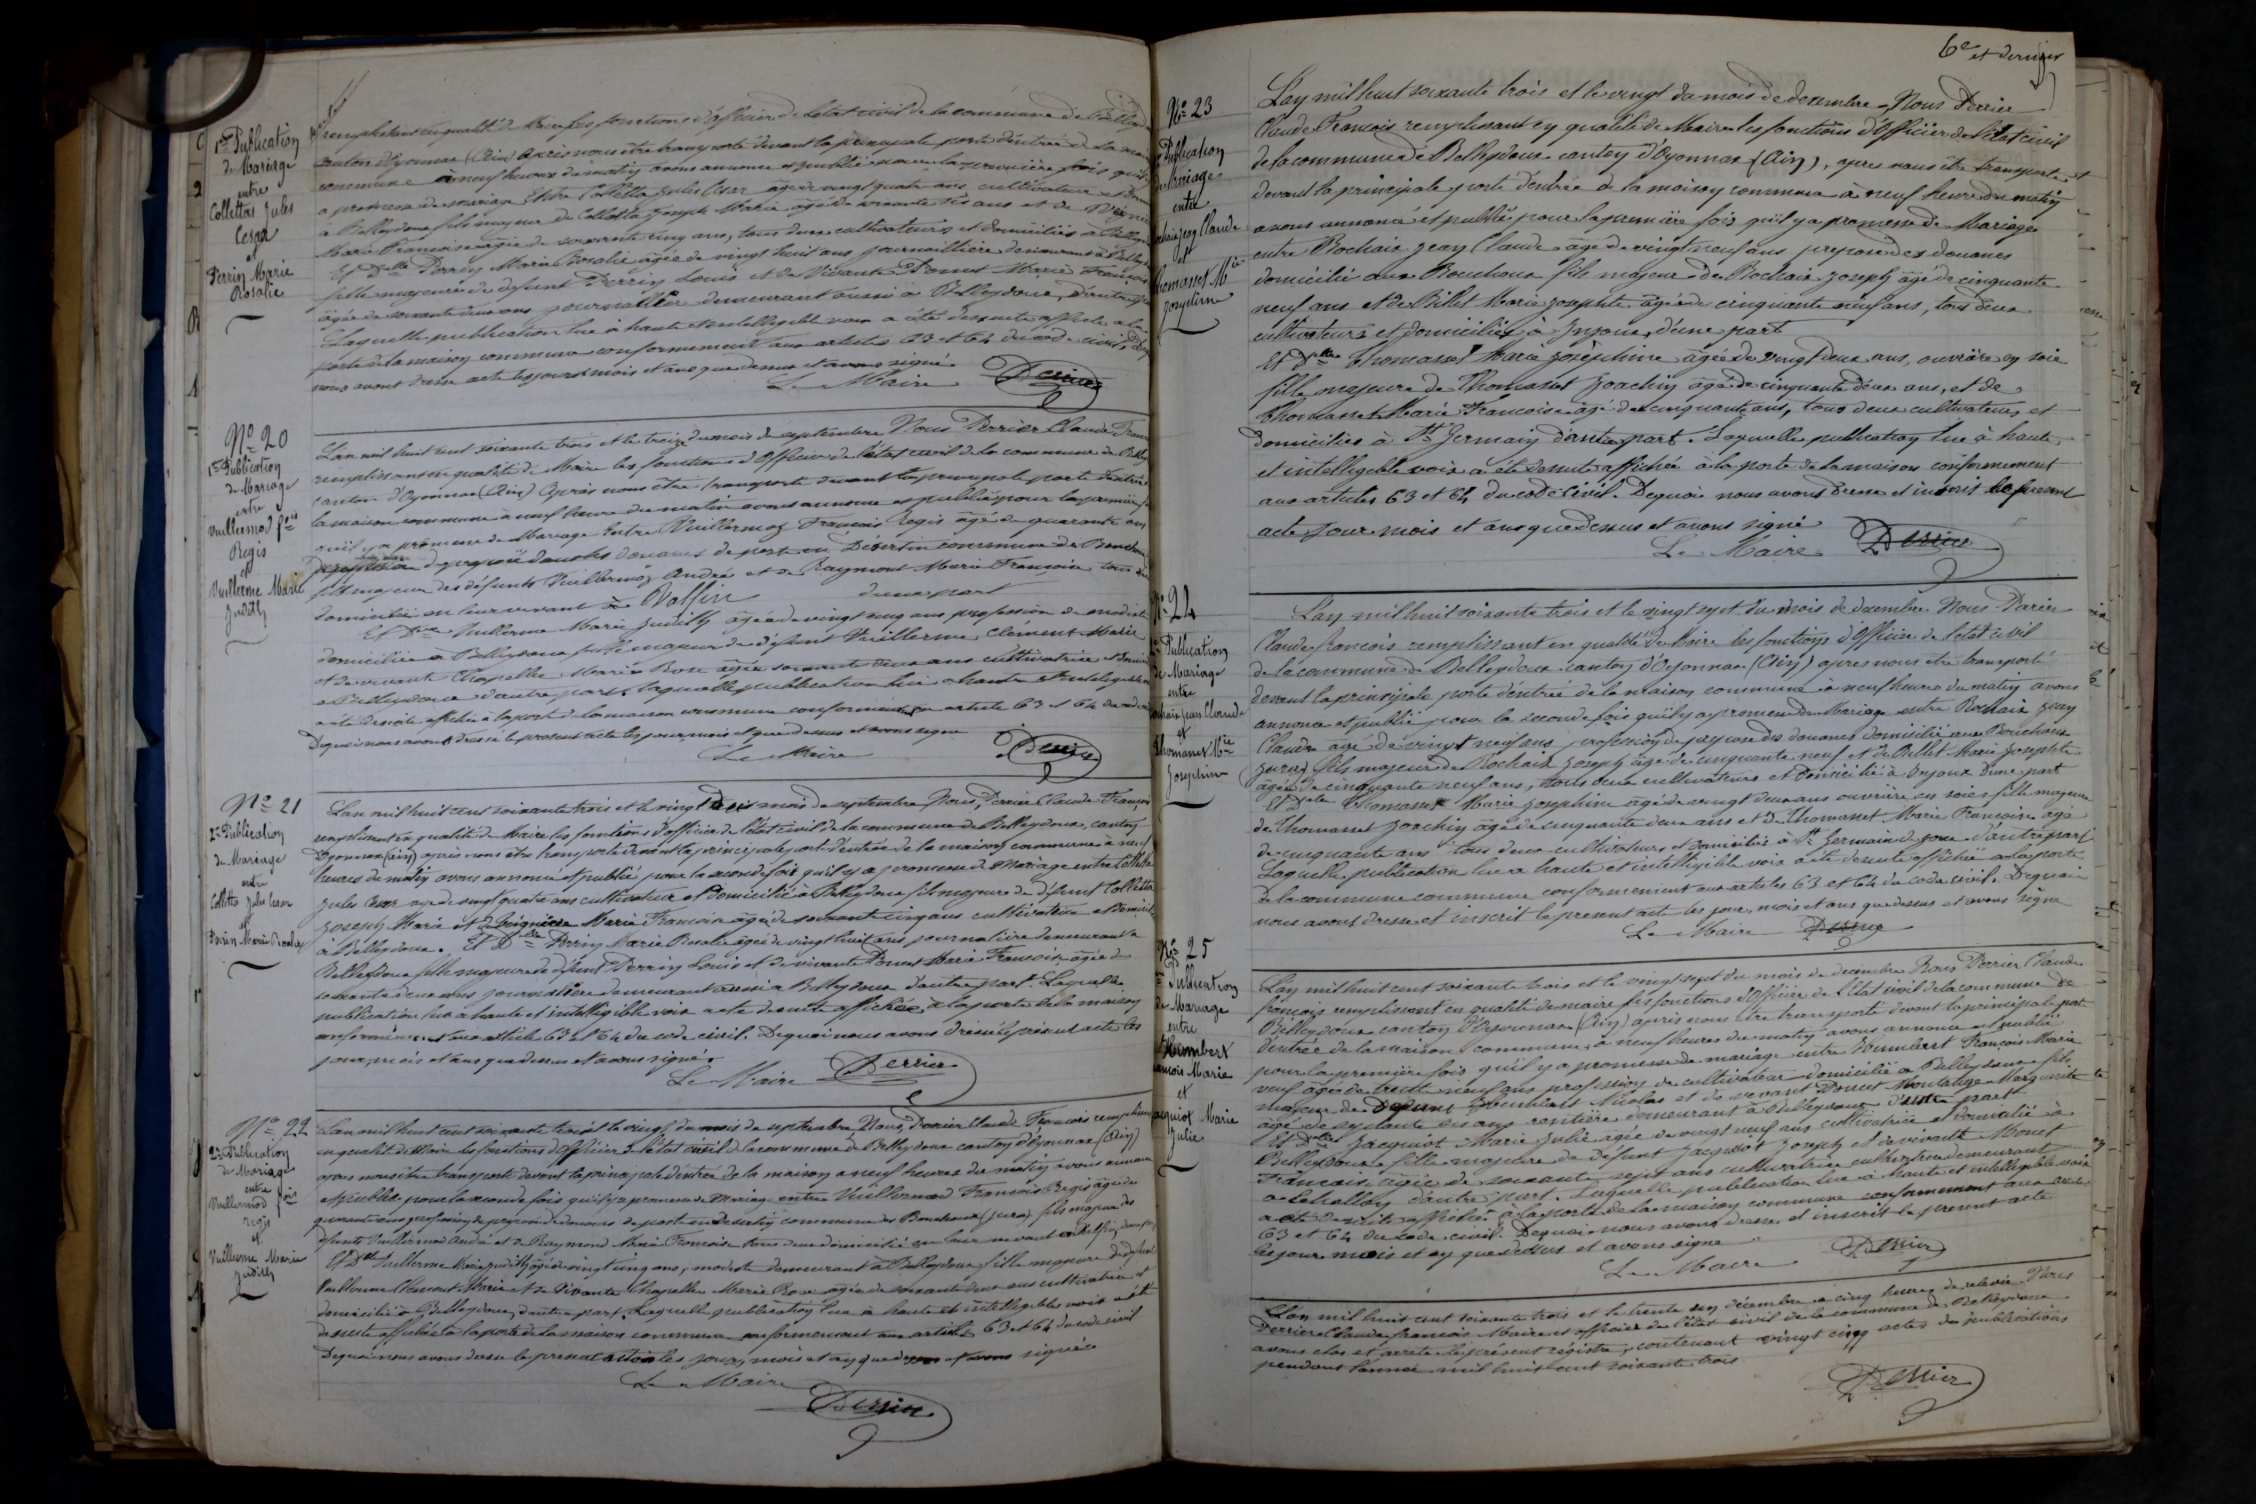 1re Publication
de Mariage
entre
Collettas Jules
Cesar
et
Perrin Marie
Rosalie
remplissant en qualité de Maire les fonctions d'officier de l'état civil de la commune de Belleyd
canton d'Oyonnax (Ain) après nous être transporté devant la principale porte d'entrée de la mai
commune à neuf heures du matin avons annoncé et publié pour la première fois qu'il
a promesse de mariage Entre Colletta Jules Cesar agé de vingt quatre ans, cultivateur et dom
à Belleydoux fils majeur de Colletta Joseph Marie agé de soixante six ans et de
Marie Françoise agée de soixante cinq ans, tous deux cultivateurs et domiciliés à Belley
Et Delle Perrin Marie Rosalie agée de vingt huit ans journallière demeurant à Belley
fille majeure de defunt Perrin Louis et de Vivante Poncet Marie Françoise
agée de soixante deux ans journallière demeurant aussi à Belleydoux, d'autre p
Laquelle publication lue à haute et intelligible voix a été desuite affiché a la
porte de la maison commune conformement aux articles 63 et 64 du code civil, D
nous avons dressé acte les jours mois et ans que dessus et avons signé
Le Maire Perrier
No 20
1re Publication
de Mariage
entre
Vuillermod fcois
Regis
et
Vuillerme Marie
Judith
L'an mil huit cent soixante trois et le treize du mois de septembre Nous Perrier Claude Franc
remplissant en qualité de Maire les fonctions d'Officier de l'état civil de la commune de Belley
canton d'Oyonnax (Ain) Après nous être transporté devant la principale porte d'entrée
la maison commune à neuf heures du matin avons annoncé et publié pour la première f
qu'il y a promesse de Mariage Entre Vuillermoz François Regis agé de quarante ans
profession de preposé dans les douanes de poste en Désertin commune de Bouchou
fils majeur des défunts Vuillermoz André et de Raymond Marie Françoise tous deux
domiciliés en leur vivant à Rolfin d'une part
Et Delle Vuillerme Marie Judith agée de vingt cinq ans profession de modiste
domiciliée à Belleydoux fille majeure de défunt Vuillerme Clément Marie
et de vivante Chapelle Marie Rose agée soixante deux ans cultivatrice et domici
à Belleydoux d'autre part, laquelle publication lue a haute et intelligible
a été desuite affichée à la porte de la maison commune conformement aux article 63 et 64 du code
Dequoi nous avons dressé le present acte les jour mois et que dessus et avons signé
Le Maire Perrier
No 21
2e Publication
de Mariage
entre
Colletta Jules Cesar
et
Perrin Marie Rosalie
L'an mil huit cent soixante trois et le vingt du mois de septembre Nous, Perrier Claude François
remplissant en qualité de Maire les fonctions d'officier de l'état civil de la commune de Belleydoux, canton
d'Oyonnax (Ain) après nous être transporté devant la principale porte d'entrée de la maison commune à neuf
heures du matin avons annoncé et publié pour la seconde fois qu'il y a promesse de Mariage entre Colletta
Jules Cesar agé de vingt quatre ans cultivateur et domicilié à Belleydoux fils majeur de défunt Colletta
Joseph Marie et Marie Françoise agée de soixante cinq ans cultivatrice et domicili
à Belleydoux. Et Delle Perrin Marie Rosalie agée de vingt huit ans journalière demeurant à
Belleydoux fille majeure de défunt Perrin Louis et de vivante Poncet Marie Françoise agée de
soixante deux ans journalière demeurant aussi à Belleydoux d'autre part. Laquelle
publication lue à haute et intelligible voix a été de suite affichée à la porte de la maison
conformément aux article 63 et 64 du code civil. Dequoi nous avons dressé le présent acte les
jour, mois et ans que dessus et avons signé.
Le Maire Perrier
No 22
2e Publication
de Mariage
entre
Vuillermod fcois
regis
et
Vuillerme Marie
Judith
L'an mil huit cent soixante trois et le vingt du mois de septembre Nous, Perrier Claude François remplissan
en qualité de Maire les fonctions d'officier de l'état civil de la commune de Belleydoux canton d'Oyonnax (Ain)
apres nous être transporté devant la principale d'entrée de la maison a neuf heures du matin avons annoncé
et publié pour la seconde fois qu'il y a promesse de Mariage entre Vuillermod François Regis agé de
quarante ans profession de preposé de douanes de poste en Desertin commune des Bouchoux (Jura) fils majeur des
défunts Vuillermod André et de Raymond Marie Françoise tous deux domiciliés en leur vivant à Rolfin, d'une par
Et Delle Vuillerme Marie Judith agée de vingt cinq ans, modiste demeurant à Belleydoux fille majeure de défunt
Vuillerme Clement Marie et de Vivante Chapelle Marie Rose agée de soixante deux ans cultivatrice et
domicilié à Belleydoux, d'autre part, Laquelle publication lue à haute et intelligible voix a été
de suite affichée à la porte de la maison commune conformement aux articles 63 et 64 du code civil
Dequoi nous avons dressé le present acte les jour, mois et an que dessus et avons signé
Le Maire
Perrier
6e et dernier
No 23
Publication
de Mariage
entre
Rochaix Jean Claude
et
Thomasset Mie
Josephine
L'an mil huit soixante trois et le vingt du mois de decembre. Nous Perrier
Claude François remplissant en qualité de Maire les fonctions d'Officier de l'état civil
de la commune de Belleydoux canton d'Oyonnax (Ain), apres nous être transporté
devant la principale porte d'entrée de la maison commune à neuf heure du matin
avons annoncé et publié pour la première fois qu'il y a promesse de Mariage
entre Rochaix Jean Claude agé de vingt neuf ans preposé des douanes
domicilié aux Bouchoux fils majeur de Rochaix Joseph âgé de cinquante
neuf ans et de Billet Marie Josephte agée de cinquante neuf ans, tous deux
cultivateurs et domiciliés à Injoux, d'une part
Et Delle Thomasset Marie Joséphine âgée de vingt deux ans, ouvrière en soie
fille majeure de Thomasset Joachin âgé de cinquante deux ans, et de
Thomasset Marie Françoise âgé de cinquante ans, tous deux cultivateurs et
domiciliés à St Germain d'autre part. Laquelle publication lue à haute
et intelligible voix a été desuite affichée à la porte de la maison conformement
aux articles 63 et 64 du code Civil. Dequoi nous avons dressé et inscris le present
acte jour mois et ans que dessus et avons signé
Le Maire Perrier
No 24
2e Publication
de Mariage
entre
Rochaix Jean Claude
et
Thomasset Mie
Josephine
L'an mil huit soixante trois et le vingt sept du mois de decembre Nous Perrier
Claude François remplissant en qualité de Maire les fonctions d'Officier de l'état civil
de la commune de Belleydoux canton d'Oyonnax (Ain) apres nous être transporté
devant la principale porte d'entrée de la maison commune à neuf heures du matin avons
annoncé et publié pour la seconde fois qu'il y a promesse de Mariage entre Rochaix Jean
Claude âgé de vingt neuf ans profession de preposé des douanes domicilié aux Bouchoux
Jura, fils majeur de Rochaix Joseph âgé de cinquante neuf et de Billet Marie Josephte
âgée de cinquante neuf ans, tous deux cultivateurs et domicilié à Injoux d'une part
Et Delle Thomasset Marie Josephine âgé de vingt deux ans ouvrière en soie fille majeure
de Thomasset Joachin âgé de cinquante deux ans et de Thomasset Marie Françoise âgé
de cinquante ans tous deux cultivateurs et domiciliés à St Germain de Joux d'autre part
Laquelle publication lue a haute et intelligible voix a été desuite affichée a la porte
de la commune commune conformement aux articles 63 et 64 du code civil. Dequoi
nous avons dressé et inscrit le present acte les jour, mois et ans que dessus et avons signé
Le Maire Perrier
No 25
Publication
de Mariage
entre
Humbert
François Marie
et
Jacquiot Marie
Julie
L'an mil huit cent soixante trois et le vingt sept du mois de decembre Nous Perrier Claude
françois remplissant en qualité de maire les fonctions d'Officier de l'état civil de la commune de
Belleydoux canton d'Oyonnax (Ain) après nous être transporté devant la principale port
d'entrée de la maison commune, à neuf heures du matin avons annoncé et publié
pour la première fois qu'il y a promesse de mariage entre Humbert François Marie
veuf âgé de trente neuf ans profession de cultivateur domicilié à Belleydoux fils
majeur de Defunt Humbert Nicolas et de vivant Poncet Montange Marguerite
âgé de septante six ans rentière demeurant à Belleydoux d'autre part
Et Delle Jacquiot Marie Julie agée de vingt neuf ans cultivatrice et domicilié à
Belleydoux fille majeure de défunt Jacquiot Joseph et de vivante Monet
Francoise âgée de soixante sept ans cultivatrice demeurant
à d'autre part. Laquelle publication lue à haute et intelligible voix
a été desuite affichée à la porte de la maison commune conformement aux articles
63 et 64 du Code civil. Dequoi nous avons dressé et inscrit le present acte
les jour mois et an que dessus et avons signé
Le Maire Perrier
L'an mil huit cent soixante trois et le trente un décembre à cinq heures de relevée Nous
Perrier Claude francois Maire et officier de l'état civil de la commune de Belleydoux
avons clos et arreté le présent régistre, contenant vingt cinq actes de publications
pendant l'année mil huit cent soixante trois
Perrier